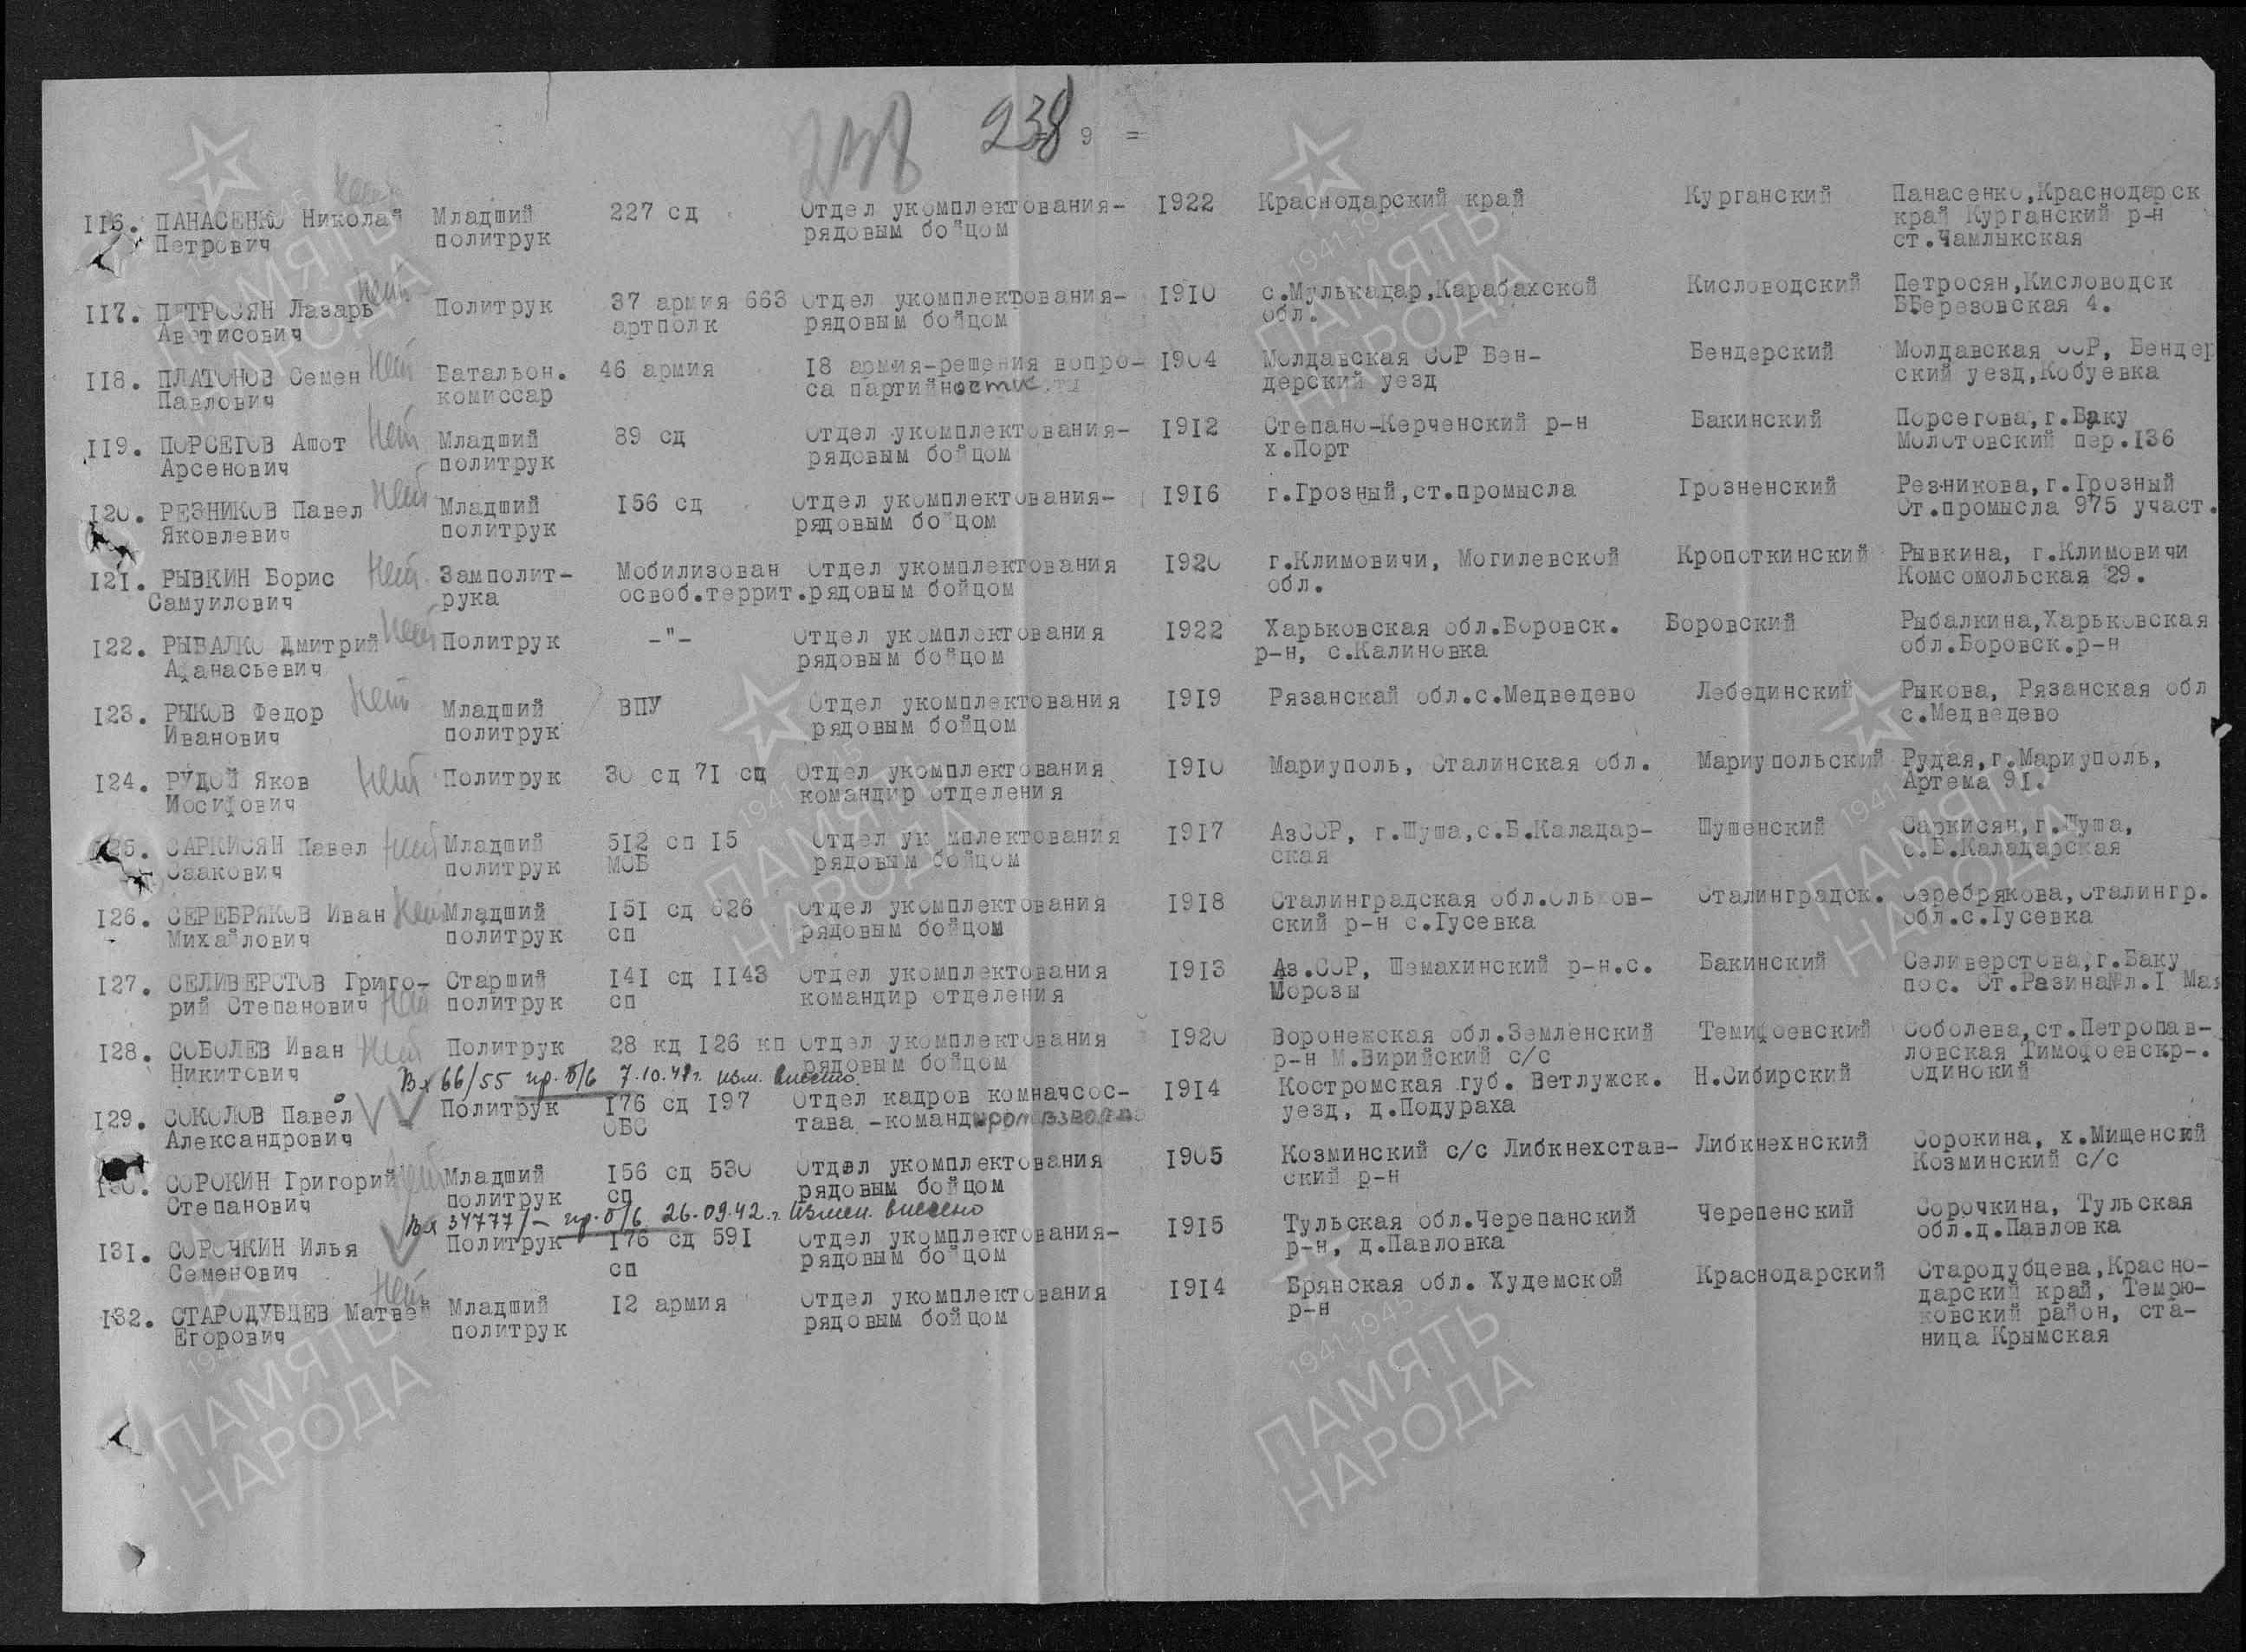 238 238 = 9 =
116. ПАНАСЕНКО Николай Младший 227 сд Отдел укомплектования- 1922 Краснодарский край Курганский Панасенко,Краснодарск
Петрович политрук рядовым бойцом край Курганский р-н
ст.Чамлыкская
нет
117. ПЕТРОСЯН Лазарь Политрук 37 армия 663 Отдел укомплектования- 1910 с.Мулькадар,Карабахской Кисловодский Петросян,Кисловодск
Аветисович артполк рядовым бойцом обл. ББерезовская 4.
нет
118. ПЛАТОНОВ Семен нет Батальон. 46 армия 18 армия-решения вопро- 1904 Молдавская ССР Бен- Бендерский Молдавская ССР, Бендер
Павлович комиссар са партийности дерский уезд ский уезд,Кобуевка
119. ПОРСЕГОВ Ашот нет Младший 89 сд Отдел укомплектования- 1912 Степано-Керченский р-н Бакинский Порсегова,г.Баку
Арсенович политрук рядовым бойцом х.Порт Молотовский пер.136
120. РЕЗНИКОВ Павел нет Младший 156 сд Отдел укомплектования- 1916 г.Грозный,ст.промысла Грозненский Резникова,г.Грозный
Яковлевич политрук рядовым бойцом Ст.промысла 975 участ.
121. РЫВКИН Борис нет Замполит- Мобилизован Отдел укомплектования 1920 г.Климовичи, Могилевской Кропоткинский Рывкина, г.Климовичи
Самуилович рука освоб.террит.рядовым бойцом обл. Комсомольская 29.
122. РЫБАЛКО Дмитрий нет Политрук -"- Отдел укомплектования 1922 Харьковская обл.Боровск. Боровский Рыбалкина,Харьковская
Афанасьевич рядовым бойцом р-н, с.Калиновка обл.Боровск.р-н
123. РЫКОВ Федор нет Младший ВПУ Отдел укомплектования 1919 Рязанскай обл.с.Медведево Лебединский Рыкова, Рязанская обл
Иванович политрук рядовым бойцом с.Медведево
124. РУДОЙ Яков нет Политрук 30 сд 71 сп Отдел укомплектования 1910 Мариуполь, Сталинская обл. Мариупольский Рудая,г.Мариуполь,
Иосифович командир отделения Артема 91.
125. САРКИСЯН Павел нет Младший 512 сп 15 Отдел ук мплектования 1917 АзССР, г.Шуша,с.Б.Каладар- Шушенский Саркисян,г.Шуша,
Саакович политрук МСБ рядовым бойцом ская с.Б.Каладарская
126. СЕРЕБРЯКОВ Иван нет Младший 151 сд 626 Отдел укомплектования 1918 Сталинградская обл.Ольхов- Сталинградск. Серебрякова,Сталингр.
Михайлович политрук сп рядовым бойцом ский р-н с.Гусевка обл.с.Гусевка
127. СЕЛИВЕРСТОВ Григо- Старший 141 сд 1143 Отдел укомплектования 1913 Аз.ССР, Шемахинский р-н.с. Бакинский Селиверстова,г.Баку
рий Степанович нет политрук сп командир отделения Морозы пос. Ст.Разина л.1 Мая
128. СОБОЛЕВ Иван нет Политрук 28 кд 126 кп Отдел укомплектования 1920 Воронежская обл.Земленский Темифоевский Соболева,ст.Петропав-
Никитович рядовым бойцом р-н М.Вирийский с/с ловская Тимофоевскр-.
Вх 66/55 пр. б/б 7.10.42г. изм. внесено
129. СОКОЛОВ Павел Политрук 176 сд 197 Отдел кадров комначсос- 1914 Костромская губ. Ветлужск. Н.Сибирский Одинокий
Александрович ОБС тава -командиром взвода уезд, д.Подураха
130. СОРОКИН Григорий нет Младший 156 сд 530 Отдел укомплектования 1905 Козминский с/с Либкнехстав- Либкнехнский Сорокина, х.Мищенский
Степанович политрук сп рядовым бойцом ский р-н Козминский с/с
Вх 34777/- пр. б/б 26.09.42.г. Измен. внесено
131. СОРОЧКИН Илья Политрук 176 сд 591 Отдел укомплектования- 1915 Тульская обл.Черепанский Черепенский Сорочкина, Тульская
Семенович сп рядовым бойцом р-н, д.Павловка обл.д.Павловка
нет
132. СТАРОДУБЦЕВ Матвей Младший 12 армия Отдел укомплектования 1914 Брянская обл. Худемской Краснодарский Стародубцева,Красно-
Егорович политрук рядовым бойцом р-н дарский край, Темрю-
ковский район, ста-
ница Крымская
ПАМЯТЬ НАРОДА
1941 1945